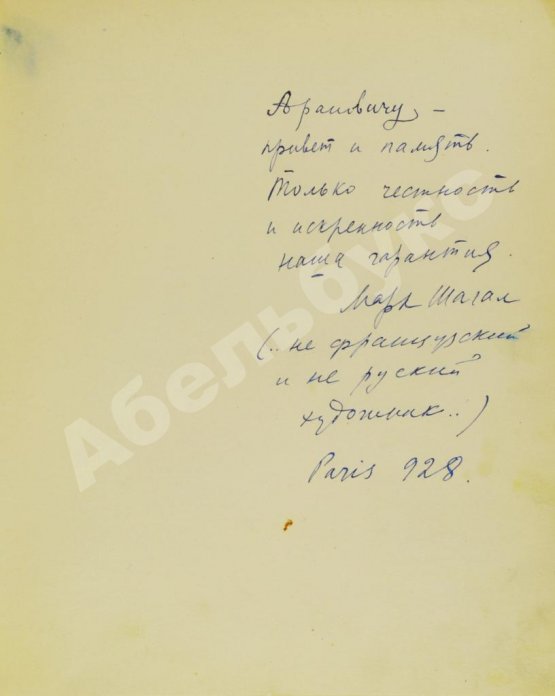 Арановичу, –
привет и память.
Только честность
и искренность
наша гарантия.
Марк Шагал
(.. не французский
и не руский
художник..)
Paris 928.
Абельбукс